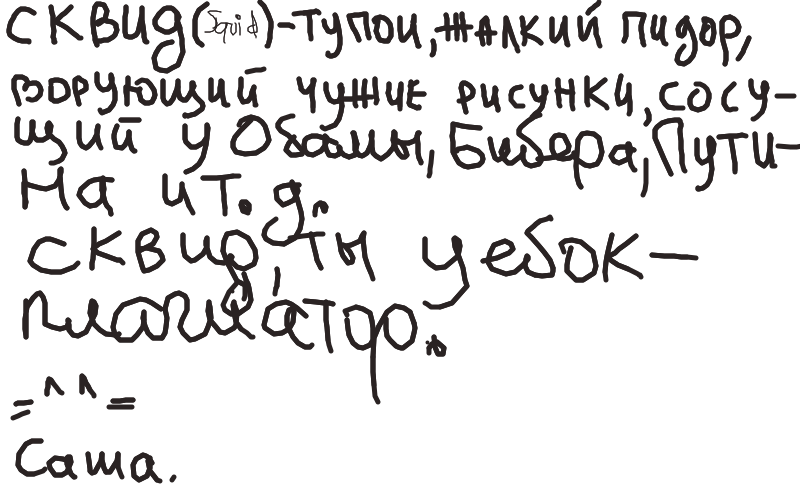 СКВИД(Squid)-ТУПОЙ,ЖАЛКИЙ ПИДОР,
ВОРУЮЩИЙ ЧУЖИЕ РИСУНКИ,СОСУ-
ЩИЙ У Обамы,Бибера,ПУТИ-
НА и т.д.
СКВИД,ТЫ уебок-
плагиатор.
=^^=
Саша.